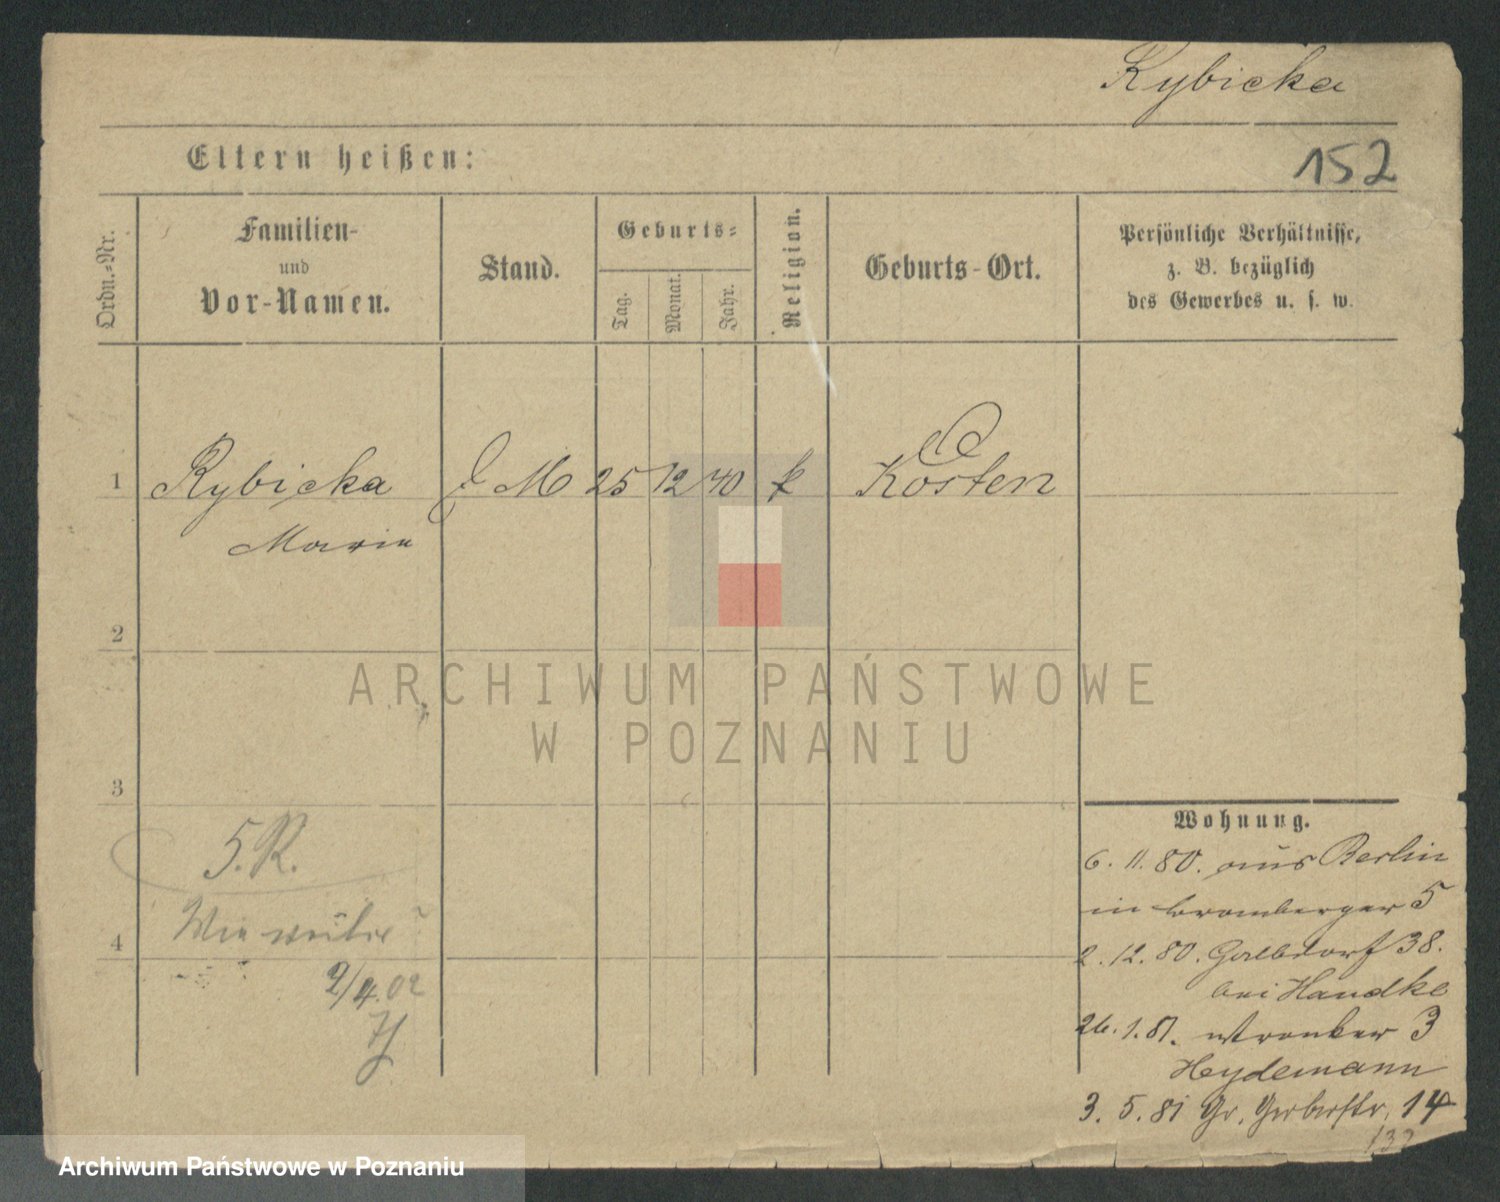 Rybicka
Eltern heißen:
152
Ordn.-Nr.
Familien-
und
Vor-Namen.
Stand.
Geburts-
Tag.
Monat.
Jahr.
Religion.
Geburts-Ort.
Persönliche Verhältnisse,
z. B. bezüglich
des Gewerbes u. s. w.
1 Rybicka M 25 12 40 k Kosten
Maria
2
ARCHIWUM PAŃSTWOWE
W POZNANIU
3
Wohnung.
5. R.
6. 11. 80. aus Berlin
in Bromberger 5
4
2. 12. 80. Halbdorf 38.
bei Handke
2/4.02
26. 1. 81. 3
Heydemann
3. 5. 81 Gr. Gerberstr. 14
132
Archiwum Państwowe w Poznaniu